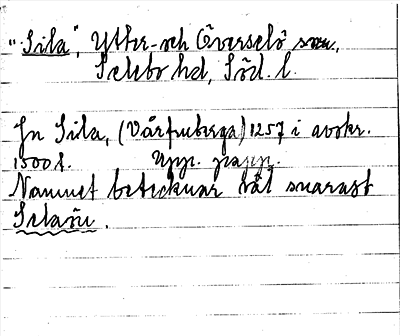 "Sila", Ytter- och Överselö snr,
Selebo hd, Söd. l.
In Sila, (Vårfruberga) 1257 i avskr.
1500 t. Upps. papp.
Namnet betecknar väl snarast
Selaön.